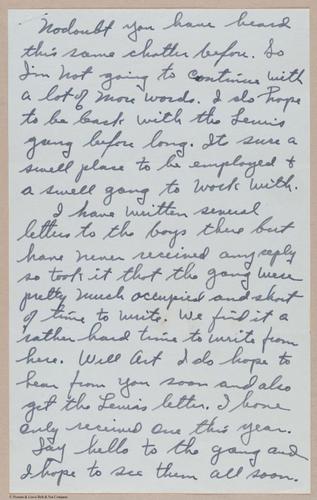 Nodoubt you have heard
this same chatter before. So
I'm not going to continue with
a lot of more words. I do hope
to be back with the Lewis
gang before long. It sure a
swell place to be employed &
a swell gang to work with.
I have written several
letters to the boys there but
have never received any reply
so took it that the gang were
pretty much occupied and short
of time to write. We find it a
rather hard time to write from
here. Well Art I do hope to
hear from you soon and also
get the Lewis letter. I have
only received one this year.
Say hello to the gang and
I hope to see them all soon.